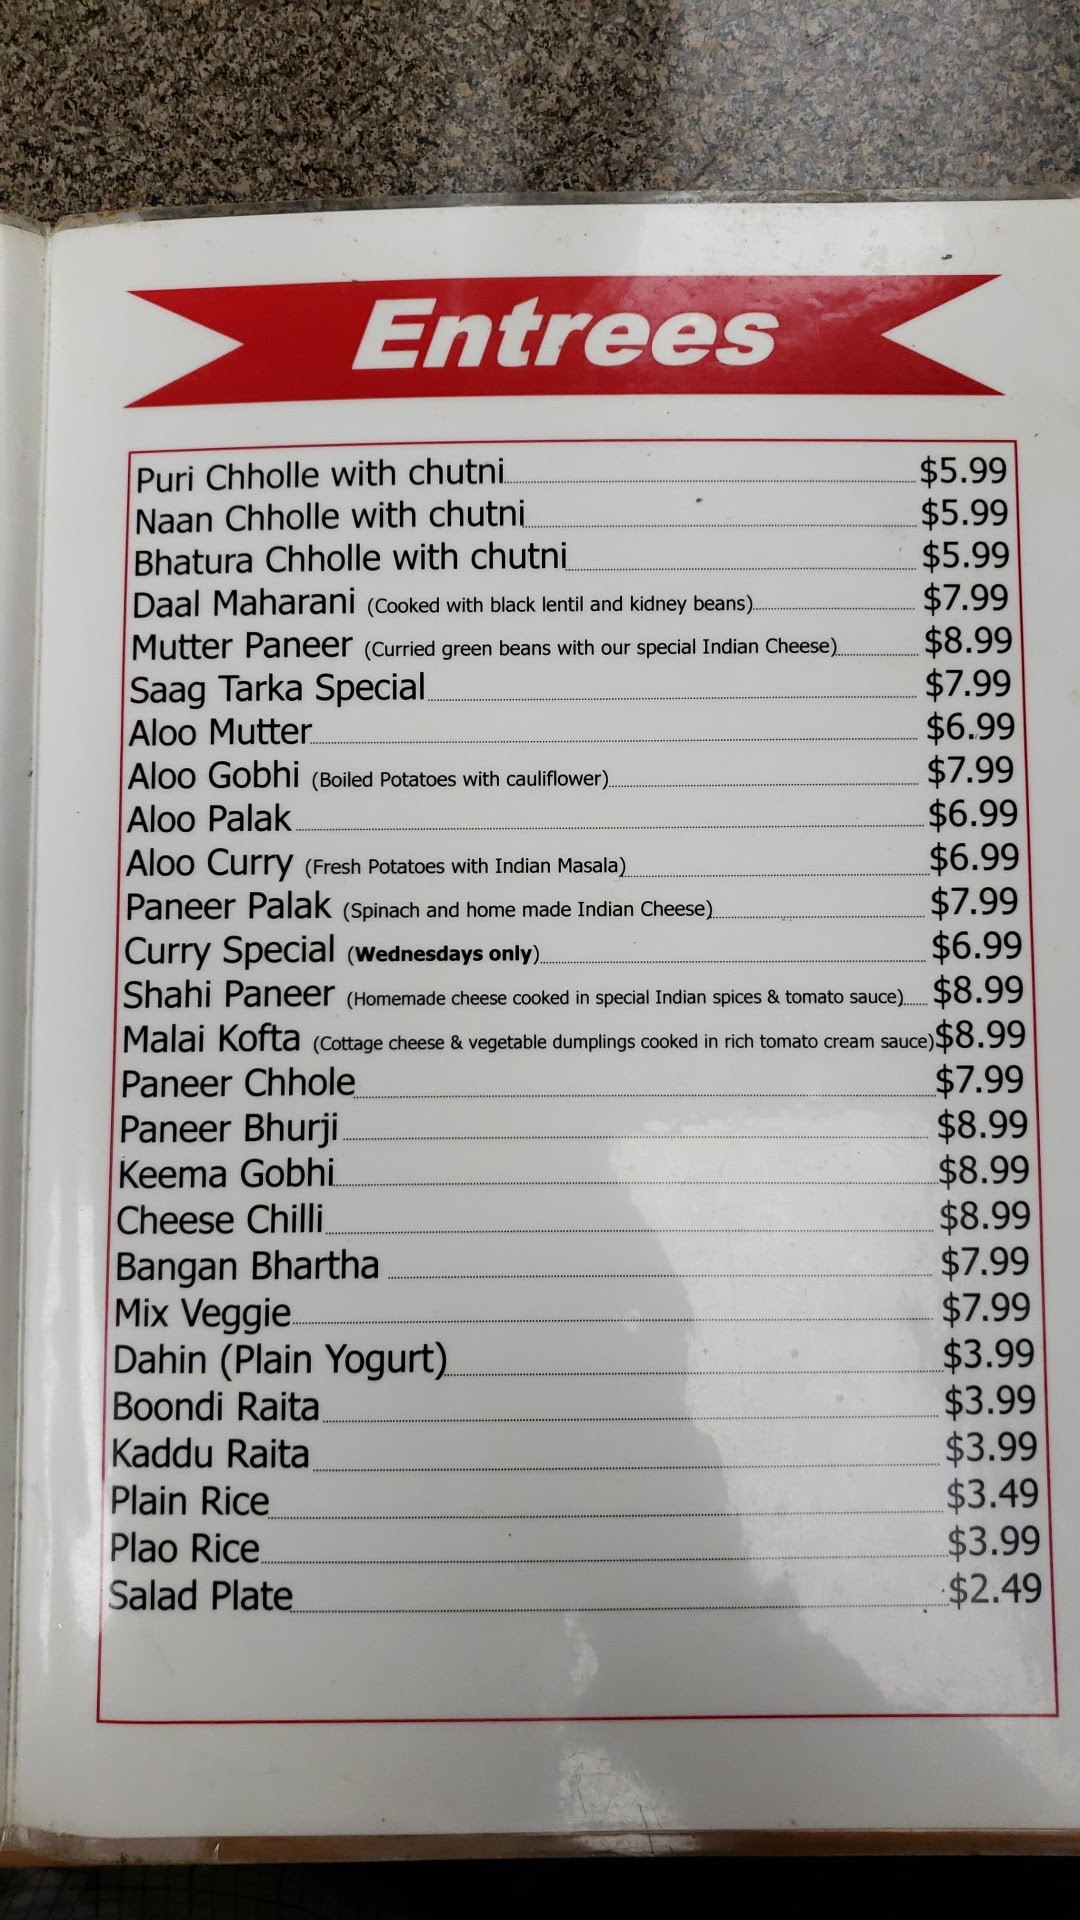 Entrees
Puri Chholle with chutni $5.99
Naan Chholle with chutni $5.99
Bhatura Chholle with chutni $5.99
Daal Maharani (Cooked with black lentil and kidney beans) $7.99
Mutter Paneer (Curried green beans with our special Indian Cheese) $8.99
Saag Tarka Special $7.99
Aloo Mutter $6.99
Aloo Gobhi (Boiled Potatoes with cauliflower) $7.99
Aloo Palak $6.99
Aloo Curry (Fresh Potatoes with Indian Masala) $6.99
Paneer Palak (Spinach and home made Indian Cheese) $7.99
Curry Special (Wednesdays only) $6.99
Shahi Paneer (Homemade cheese cooked in special Indian spices & tomato sauce) $8.99
Malai Kofta (Cottage cheese & vegetable dumplings cooked in rich tomato cream sauce) $8.99
Paneer Chhole $7.99
Paneer Bhurji $8.99
Keema Gobhi $8.99
Cheese Chilli $8.99
Bangan Bhartha $7.99
Mix Veggie $7.99
Dahin (Plain Yogurt) $3.99
Boondi Raita $3.99
Kaddu Raita $3.99
Plain Rice $3.49
Plao Rice $3.99
Salad Plate $2.49